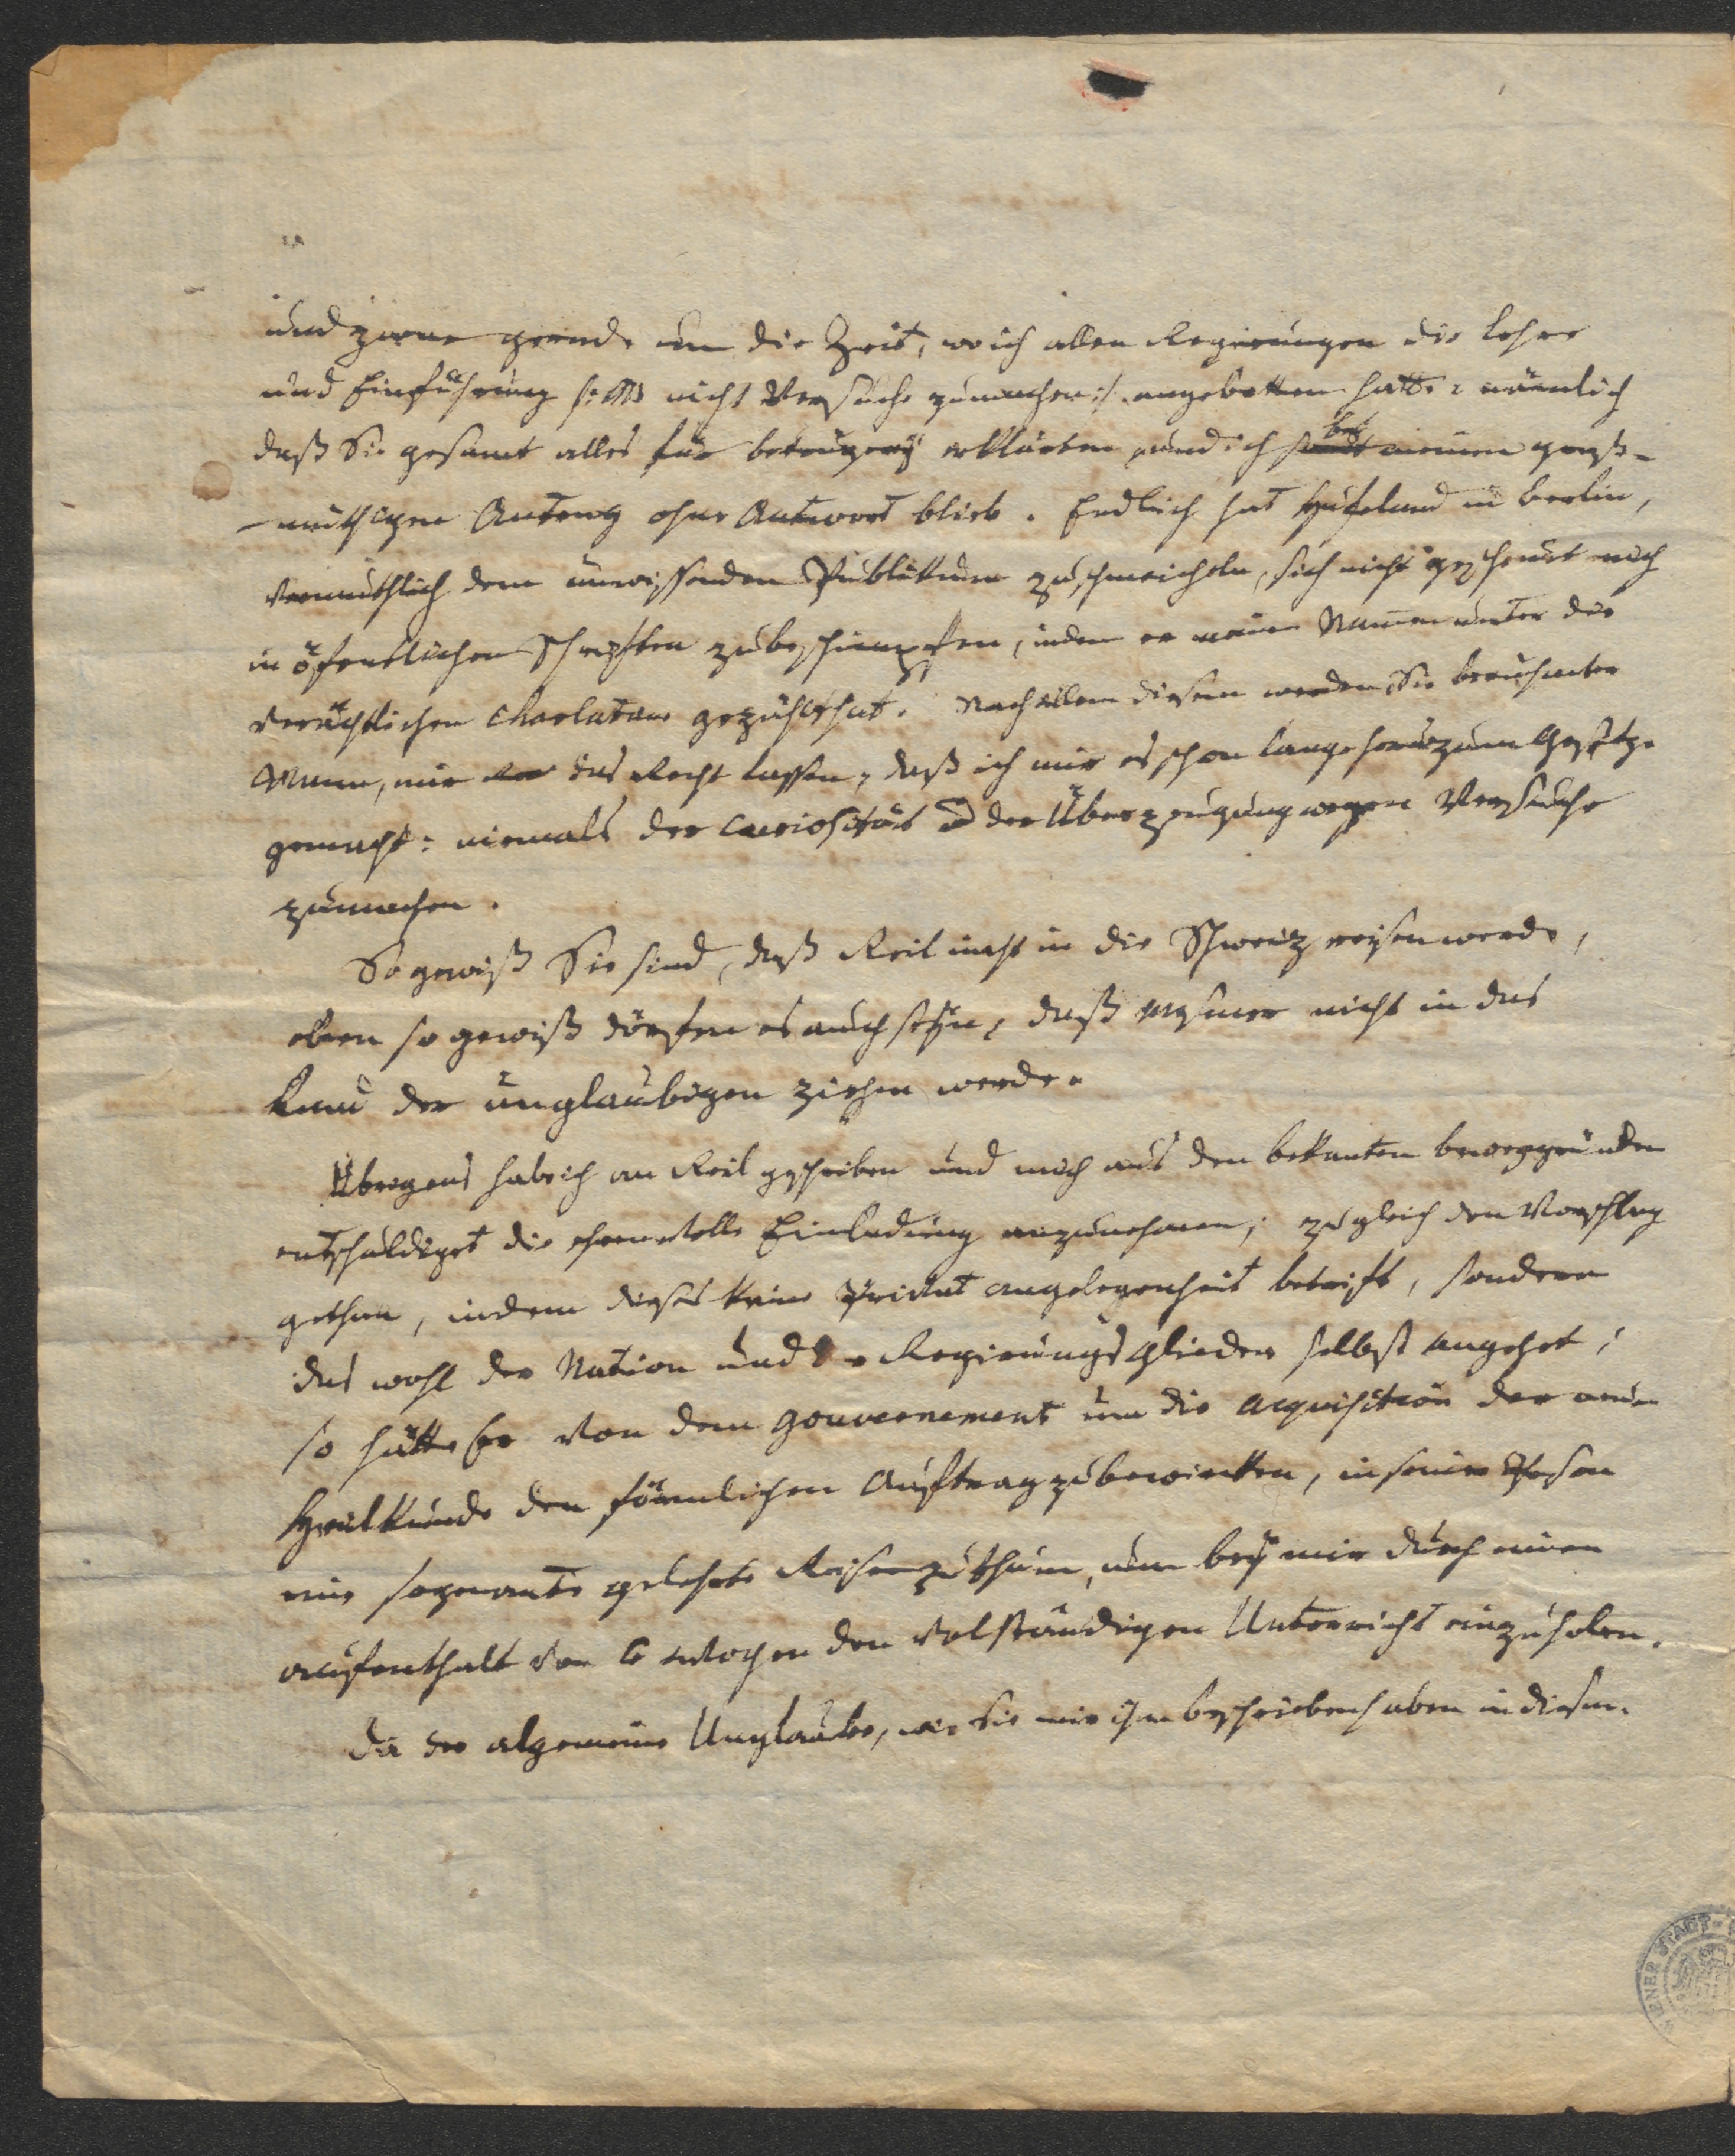 und zwar gerade um die Zeit, wo ich allen Regierungen die Lehre
und Einführung /: nicht Versuche zumachen :/ angebotten hatte: nämlich
daß Sie gesamt alles für betrügerey erklärten, und ich bey meinen groß-
-müthigen Antrag ohne Antwort blieb. Endlich hat Hufeland in Berlin,
vermuthlich dem unwissenden Publikum zuschmeicheln, sich nicht gescheut mich
in öfentlichen Schriften zubeschimpfen, indem er meinen Namen unter die
verächtlichen Charlatans gezählt hat. Nach allem diesem werden Sie berühmter
Mann, mir das Recht lassen, daß ich mir es schon lange her zum Gesetze
gemacht: niemals der Curiosität der Überzeugung wegen Versuche
zumachen.
So gewiß Sie sind, daß Reil nicht in die Schweiz reisen werde,
eben so gewiß dörfen es auch seÿn, daß Mesmer nicht in das
Land der unglaubigen ziehen werde.
Übrigens hab ich an Reil geschrieben und mich aus den bekanten beweggründen
entschuldiget die ehrenvolle Einladung anzunehmen; zugleich den Vorschlag
gethan, indem dieses keine Privat angelegenheit betrift, sondern
das wohl der Nation und Regierungs Glieder selbst angehet;
so hätte Er von dem Gouvernement um die acquisition der neuen
Heilkunde den förmlichen Auftrag zubewirken, in seiner Person
eine sogenante gelehrte Reise zuthun, um beÿ mir durch einen
aufenthalt von 6 Wochen den volständigen Unterricht einzuholen.
Da der algemeine Unglaube, wie Sie mir ihn beschrieben haben in diesem
WIENER STADT-